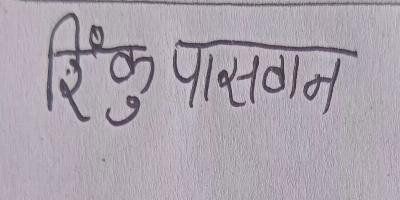 रिंकु पासवान